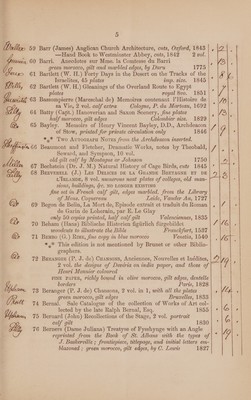 5
59 Barr (James) Anglican Church Architecture, cuts, Oxford, 1843
— Hand Book to Westminster Abbey, cuts, 1842 2 vol.
60 Barri. Anecdotes sur Mme. la Comtesse du Barri
green morocco, gilt and marbled edges, by Duru 1775
61 Bartlett (W. H.) Forty Days in the Desert on the Tracks of the
Israelites, 45 plates imp. size. 1845
62 Bartlett (W. H.) Gleanings of the Overland Route to Egypt
plates royal 8vo. 1851
63 Bassompierre (Mareschal de) Memoires contenant l'Histoire de
sa Vie, 2 vol. calf extra Cologne, P. du Marteau, 1692
64 Batty (Capt.) Hanoverian and Saxon Scenery, fine plates
half morocco, gilt edges Columbier size. 1829
65 Bayley. Memoirs of Henry Vincent Bayley, D.D. Archdeacon
of Stow, printed for private circulation only 1846
*** Two Autograph Notes from the Archdeacon inserted.
66 Beaumont and Fletcher, Dramatic Works, notes by Theobald,
Seward, and Sympson, 10 vol.
old gilt calf by Montague or Johnson 1750
67 Bechstein (Dr. J. M.) Natural History of Cage Birds, cuts 1845
68 Beeverell (J.) Les Delices de la Grande Bretagne et de
L'Irlande, 8 vol. numerous neat plates of colleges, old man-
sions, buildings, &c. no longer existing
fine set in French calf gilt, edges marbled, from the Library
of Mons. Coquereau Leide, Vander Aa, 1727
69 Begon de Belin, La Mort de, Episode extrait et traduit du Roman
de Garin le Loherain, par E. Le Glay
only 50 copies printed, half calf gilt Valenciennes, 1835
70 Beham (Hans) Biblische Historien figürlich fürgebildet
woodcuts to illustrate the Bible Franckfurt, 1537
71 Bembo (G.) Rime, fine copy in blue morocco Venetia, 1540
*** This edition is not mentioned by Brunet or other Biblio-
graphers.
72 Beranger (P. J. de) Chansons, Anciennes, Nouvelles et Inédites,
2 vol. the designs of Deveria on india paper, and those of
Henri Monnier coloured
fine paper, richly bound in olive morocco, gilt edges, dentelle
borders Paris, 1828
73 Beranger (P. J. de) Chansons, 2 vol. in 1, with all the plates
green morocco, gilt edges Bruxelles, 1833
74 Bernal. Sale Catalogue of the collection of Works of Art col-
lected by the late Ralph Bernal, Esq. 1855
75 Bernard (John) Recollections of the Stage, 2 vol. portrait
calf gilt 1830
76 Berners (Dame Juliana) Treatyse of Fysshynge with an Angle
reprinted from the Book of St. Albans with the types of
J. Baskerville; frontispiece, titlepage, and initial letters em-
blazoned; green morocco, gilt edges, by C. Lewis 1827